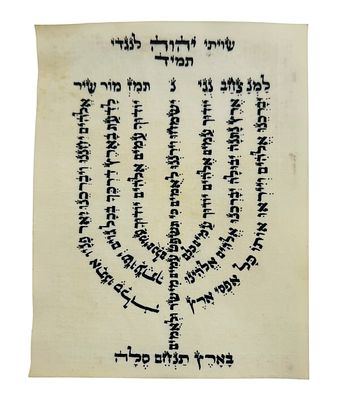 שויתי יהוה לנגדי
תמיד
למנ צחב נגי נ תמז מור שיר
יברכנו אלהים וייראו אותו כל אפסי ארץ
ארץ נתנה יבולה יברכנו אלהים אלהינו
יודוך עמים אלהים יודוך עמים כלם
ישמחו וירננו לאמים כי תשפט עמים מישור ולאמים
יודוך עמים אלהים יודוך עמים כלם
לדעת בארץ דרכך בכל גוים ישועתך
אלהים יחננו ויברכנו יאר פניו אתנו סלה
בארץ תנחם סלה